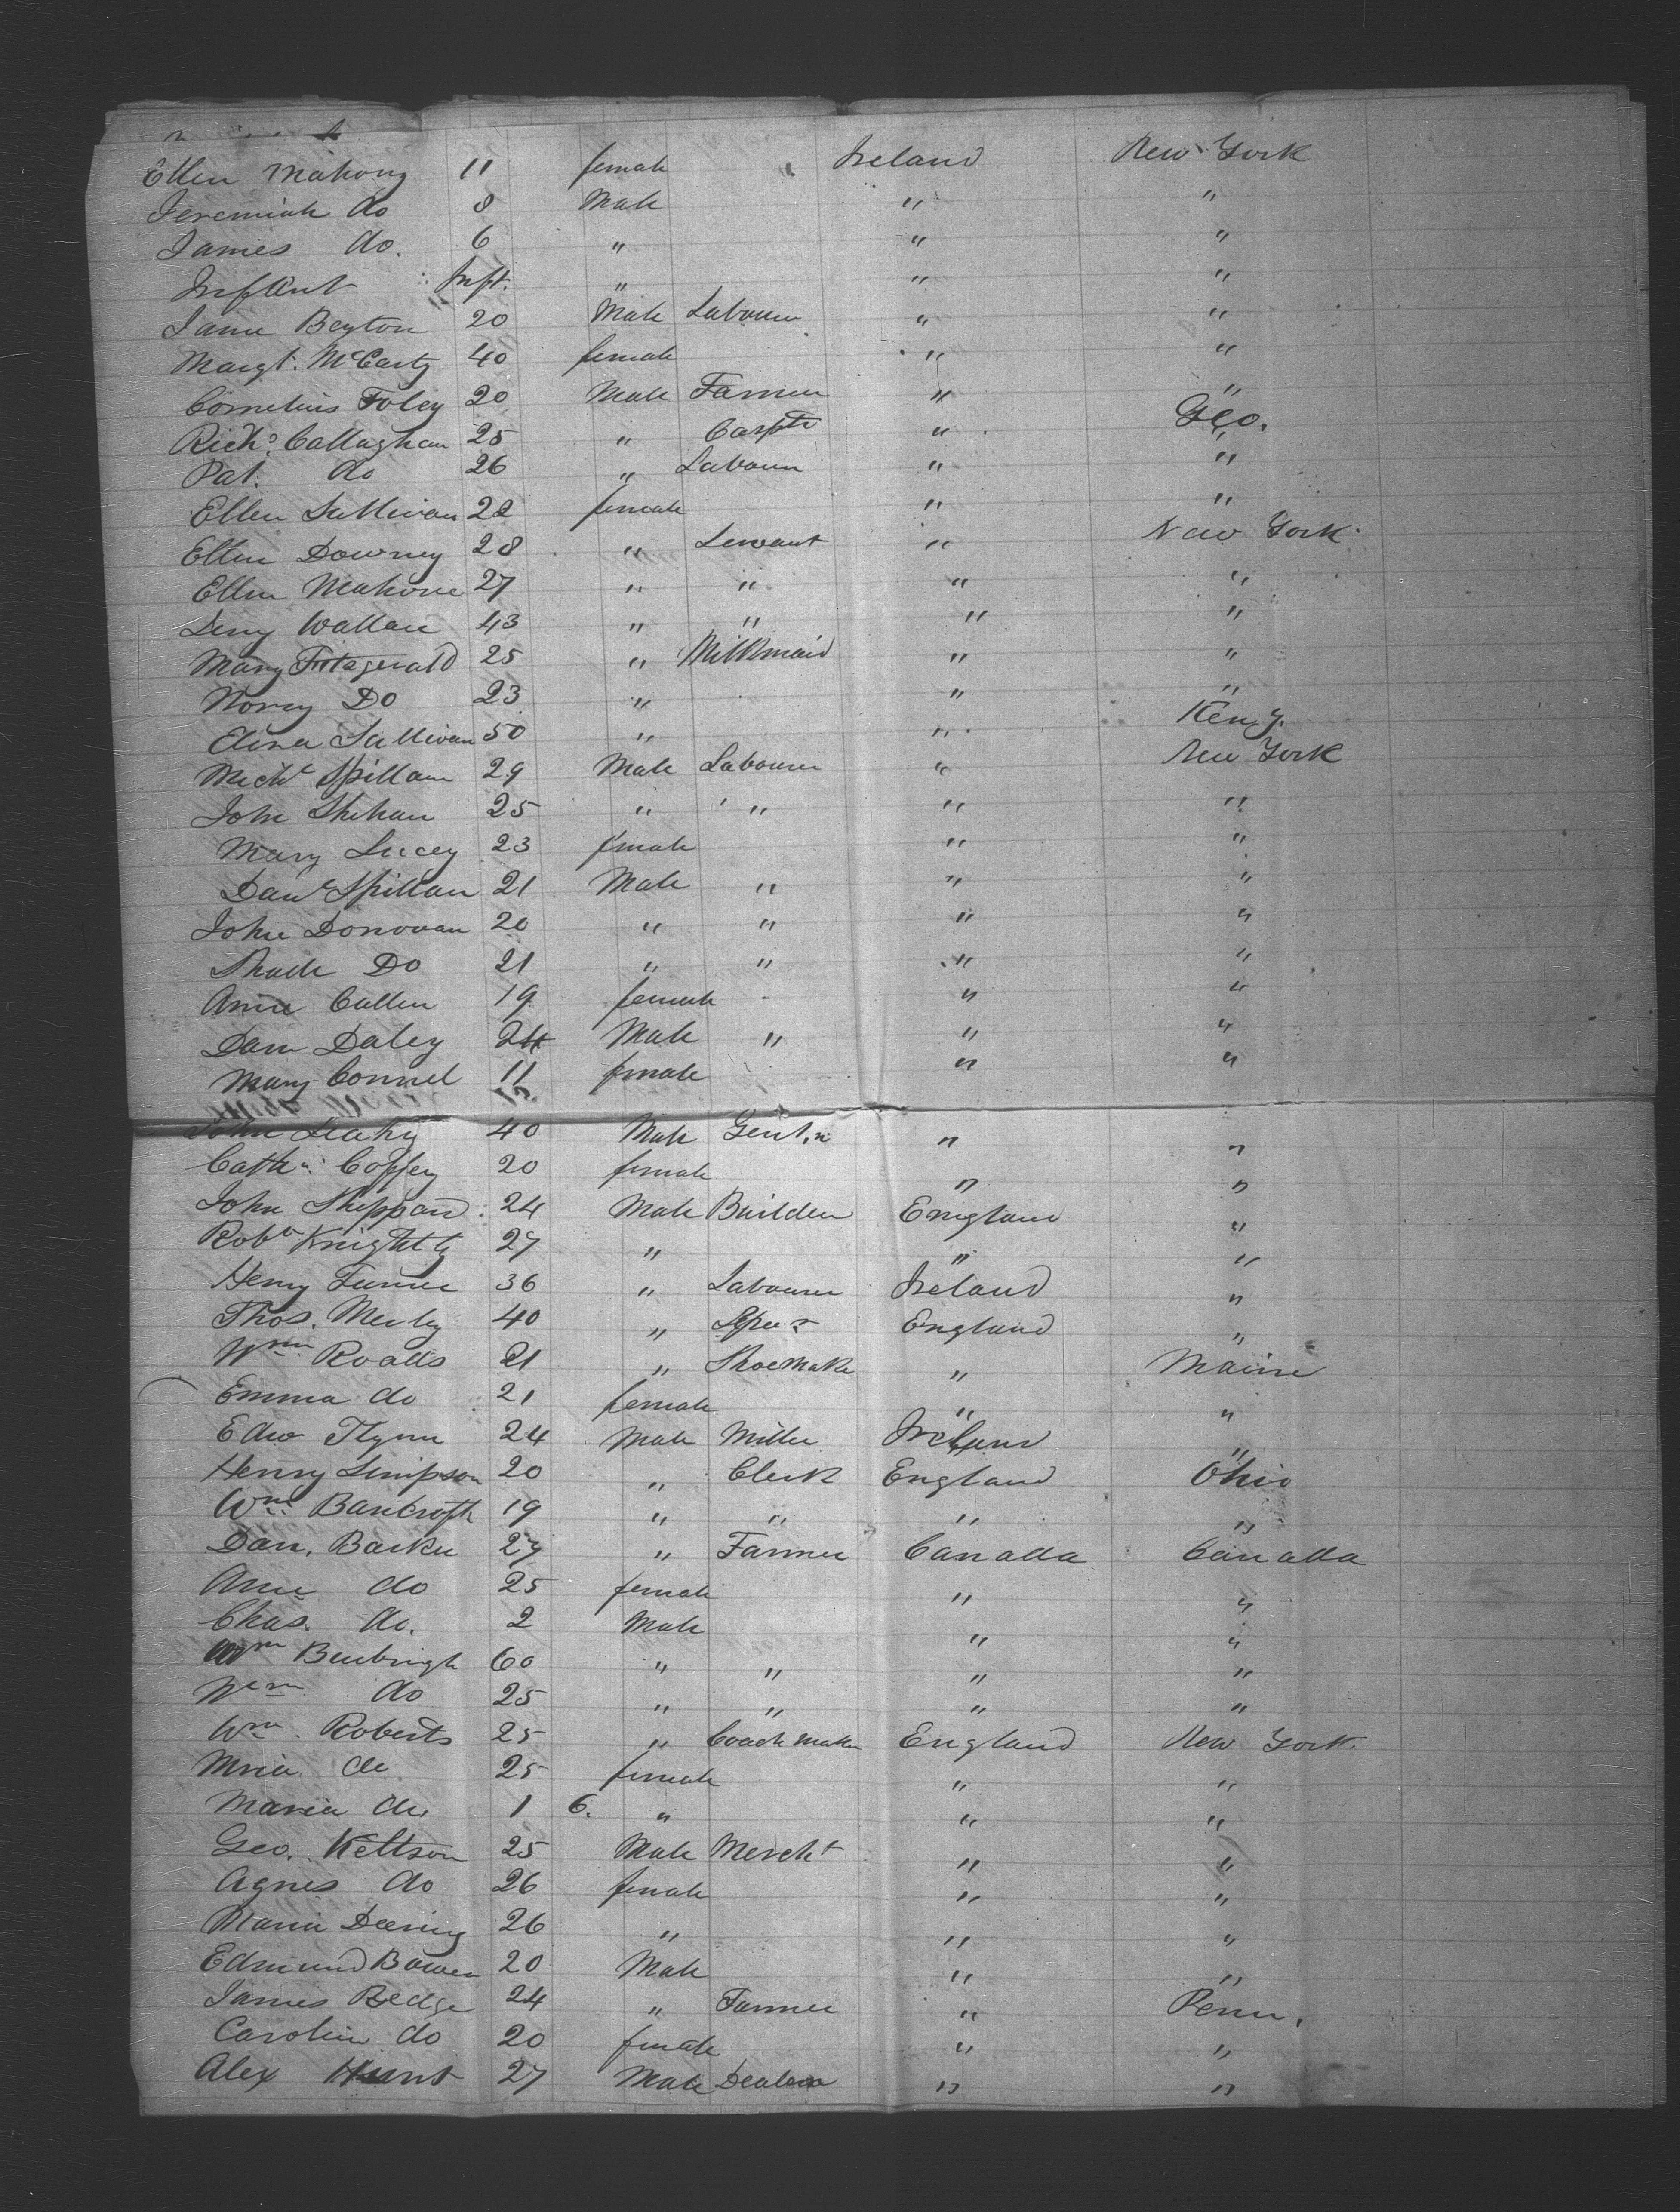 Ellen Mahony 11 female Ireland New York
Jeremiah do 8 Male " "
James do. 6 " " "
Infant Inft. " " "
James Beyton 20 Male Labourer " "
Margt. McCarty 40 female " "
Cornelius Foley 20 Male Farmer " "
Richd. Callaghan 25 " Carptr " Geo.
Pat. do 26 " Labourer " "
Ellen Sullivan 22 female " "
Ellen Downey 28 " Servant " New York
Ellen Mahone 27 " " " "
Deny Wallace 43 " " " "
Mary Fitzgerald 25 " Milkmaid " "
Norey Do 23 " " "
Elina Sullivan 50 " " Keny.
Michl Spillane 29 Male Labourer " New York
John Shehan 25 " " " "
Mary Lucey 23 female " "
Danl Spillan 21 Male " " "
John Donovan 20 " " " "
Do 21 " " " "
Anne Cullen 19 female " "
Dan Daley 24 Male " " "
Mary Connel 11 female " "
John Leahy 40 Male Gentn " "
Cathn. Coffey 20 female " "
John Sheppard 24 Male Builder England "
Robt Knightly 27 " " "
Henry Turner 36 " Labourer Ireland "
Thos. Merley 40 " England "
Wm Roads 21 " Shoemaker " Maine
Emma do 21 female " "
Edw Flynn 24 Male Miller Ireland "
Henry Simpson 20 " Clerk England Ohio
Wm. Bancroft 19 " " " "
Dan. Barker 27 " Farmer Canada Canada
Ann do 25 female " "
Chas. do. 2 Male " "
Wm Burbrigh 60 " " " "
Wm do 25 " " " "
Wm. Roberts 25 " Coachmaker England New York
Mria do 25 female " "
Maria do. 1 6. " " "
Geo. Keltson 25 Male Mercht " "
Agnes do 26 female " "
Maria Deering 26 " " "
Edmund Bowen 20 Male " "
James Bedge 24 " Farmer " Penn.
Carolin do 20 female " "
Alex Hunt 27 Male Dealer " "